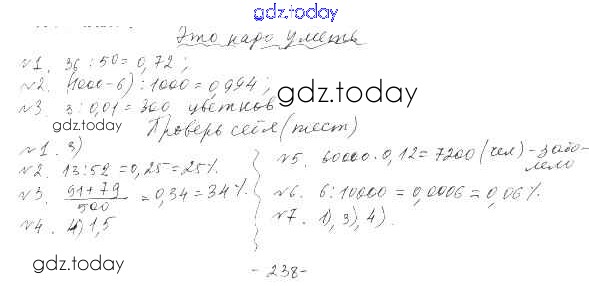 gdz.today
Это надо уметь
№1. 36 : 50 = 0,72;
№2. (1000-6) : 1000 = 0,994;
№3. 3 : 0,01 = 300 цветков
gdz.today
gdz.today
Проверь себя (тест)
№1. 3)
№2. 13:52 = 0,25 = 25%
№3. 91+79 / 500 = 0,34 = 34%
№4. 4) 1,5
№5. 60000 · 0,12 = 7200 (чел) - забо-
лело
№6. 6 : 10000 = 0,0006 = 0,06%.
№7. 1), 3), 4).
gdz.today
gdz.today
- 238 -